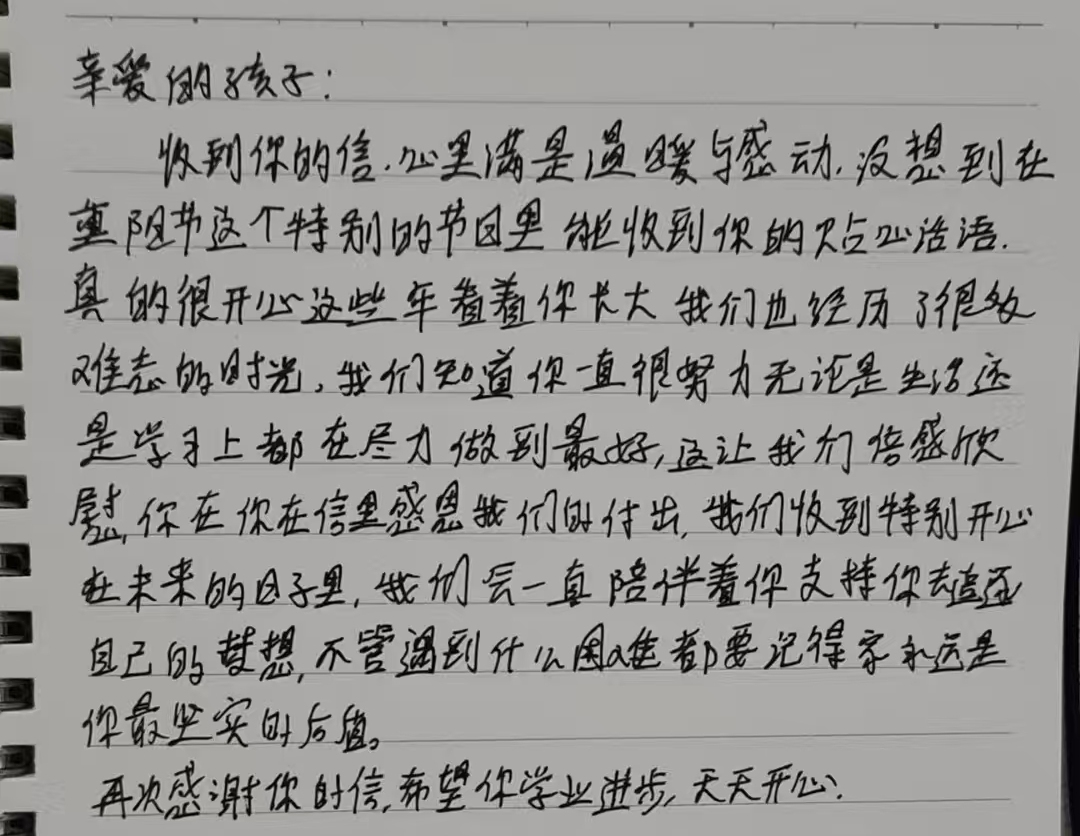 亲爱的孩子:
收到你的信,心里满是温暖与感动,没想到在
重阳节这个特别的节日里能收到你的贴心话语.
真的很开心这些年看着你长大我们也经历了很多
难忘的时光,我们知道你一直很努力无论是生活还
是学习上都在尽力做到最好,这让我们倍感欣
慰,你在你在信里感恩我们的付出,我们收到特别开心
在未来的日子里,我们会一直陪伴着你支持你去追逐
自己的梦想,不管遇到什么困难都要记得家永远是
你最坚实的后盾。
再次感谢你的信,希望你学业进步,天天开心.